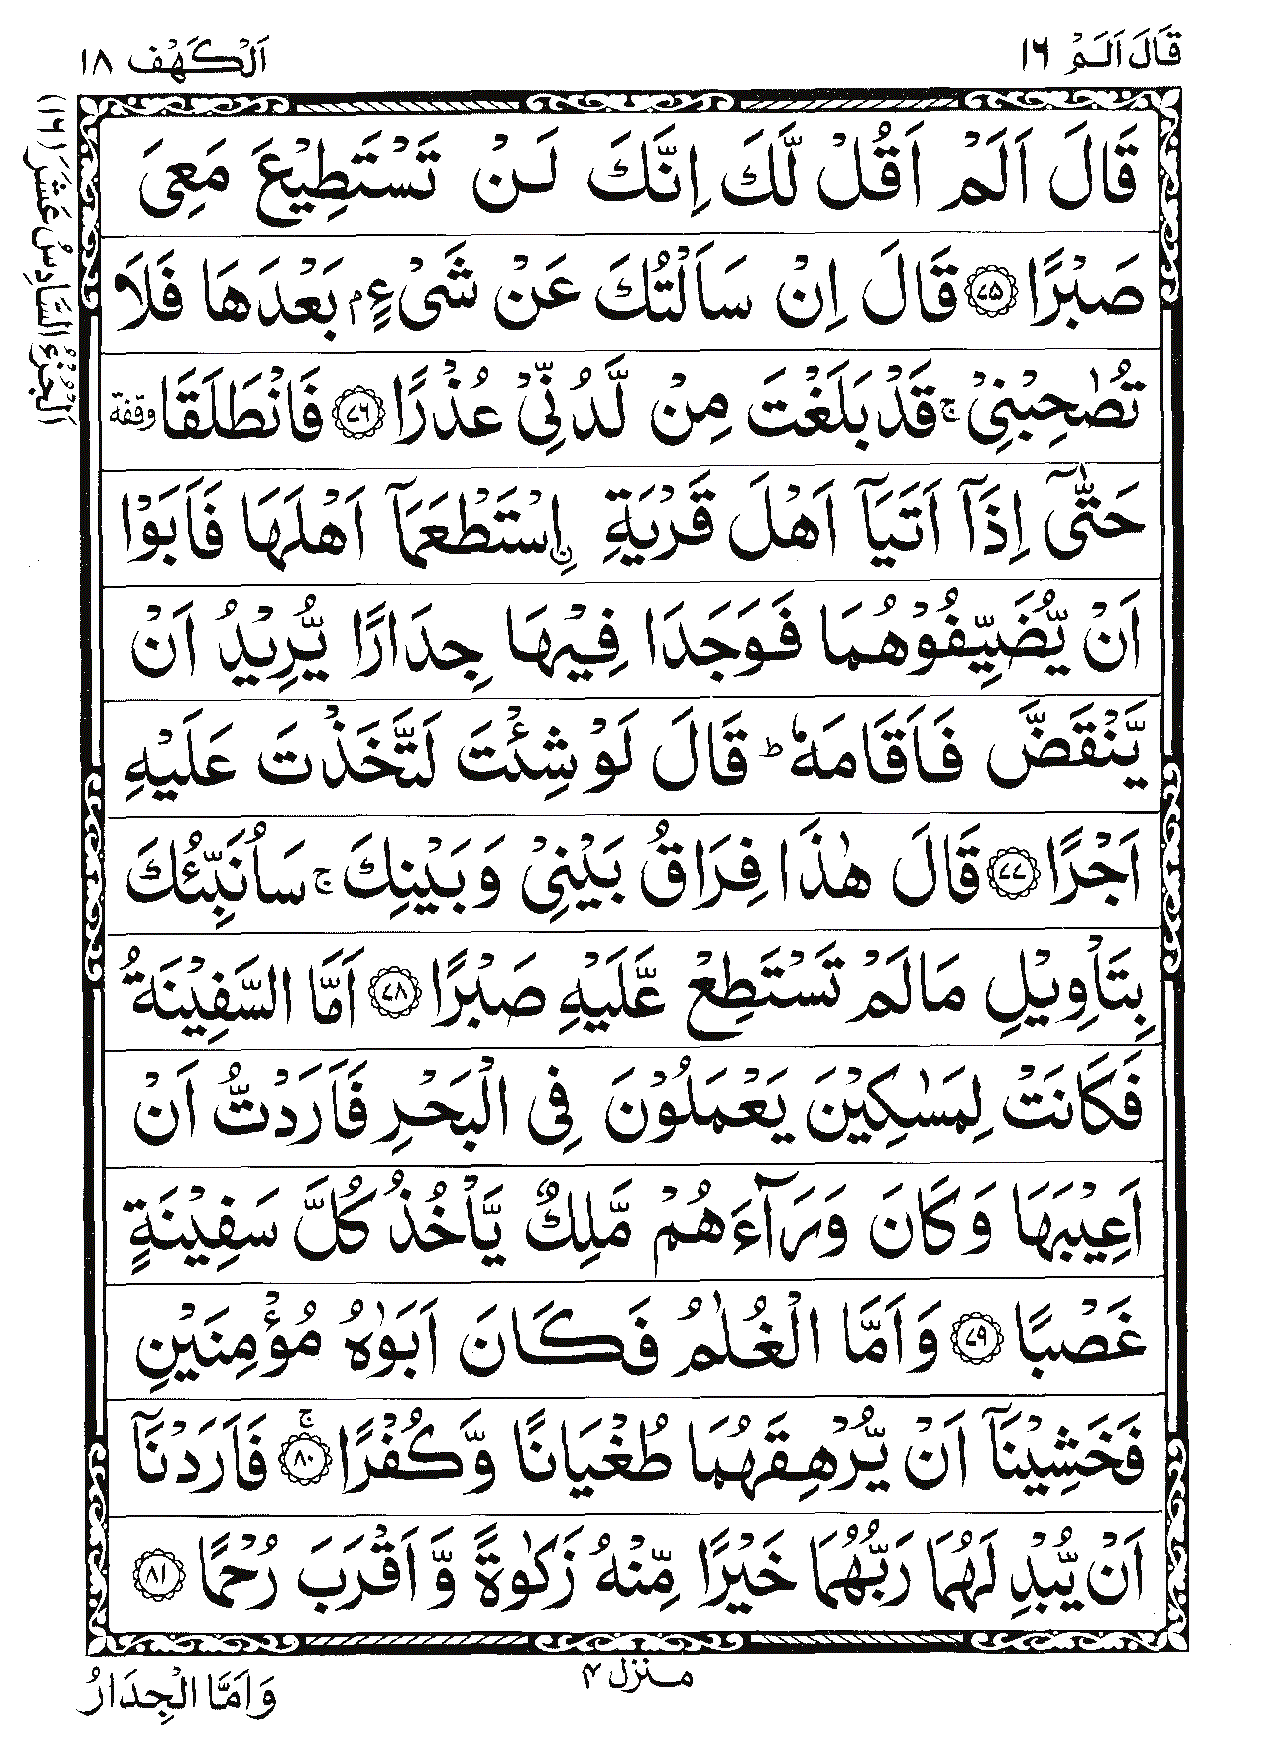 قَالَ اَلَمْ ١٦
اَلْكَهْف ١٨
اَلْجُزْءُ السَّادِسُ عَشَرَ (١٦)
قَالَ اَلَمْ اَقُلْ لَّكَ اِنَّكَ لَنْ تَسْتَطِيْعَ مَعِىَ
صَبْرًا ﴿٧٥﴾ قَالَ اِنْ سَاَلْتُكَ عَنْ شَىْءٍۭ بَعْدَهَا فَلَا
تُصٰحِبْنِىْ ۚ قَدْ بَلَغْتَ مِنْ لَّدُنِّىْ عُذْرًا ﴿٧٦﴾ فَانْطَلَقَا وقفة
حَتّٰٓى اِذَآ اَتَيَآ اَهْلَ قَرْيَةِ ۨ اسْتَطْعَمَآ اَهْلَهَا فَاَبَوْا
اَنْ يُّضَيِّفُوْهُمَا فَوَجَدَا فِيْهَا جِدَارًا يُّرِيْدُ اَنْ
يَّنْقَضَّ فَاَقَامَهٗ ؕ قَالَ لَوْ شِئْتَ لَتَّخَذْتَ عَلَيْهِ
اَجْرًا ﴿٧٧﴾ قَالَ هٰذَا فِرَاقُ بَيْنِىْ وَبَيْنِكَ ۚ سَاُنَبِّئُكَ
بِتَاْوِيْلِ مَالَمْ تَسْتَطِعْ عَّلَيْهِ صَبْرًا ﴿٧٨﴾ اَمَّا السَّفِيْنَةُ
فَكَانَتْ لِمَسٰكِيْنَ يَعْمَلُوْنَ فِى الْبَحْرِ فَاَرَدْتُّ اَنْ
اَعِيْبَهَا وَكَانَ وَرَآءَهُمْ مَّلِكٌ يَّاْخُذُ كُلَّ سَفِيْنَةٍ
غَصْبًا ﴿٧٩﴾ وَاَمَّا الْغُلٰمُ فَكَانَ اَبَوٰهُ مُؤْمِنَيْنِ
فَخَشِيْنَآ اَنْ يُّرْهِقَهُمَا طُغْيَانًا وَّكُفْرًا ﴿٨٠﴾ ۚ فَاَرَدْنَآ
اَنْ يُّبْدِلَهُمَا رَبُّهُمَا خَيْرًا مِّنْهُ زَكٰوةً وَّاَقْرَبَ رُحْمًا ﴿٨١﴾
منزل ۴
وَاَمَّا الْجِدَارُ